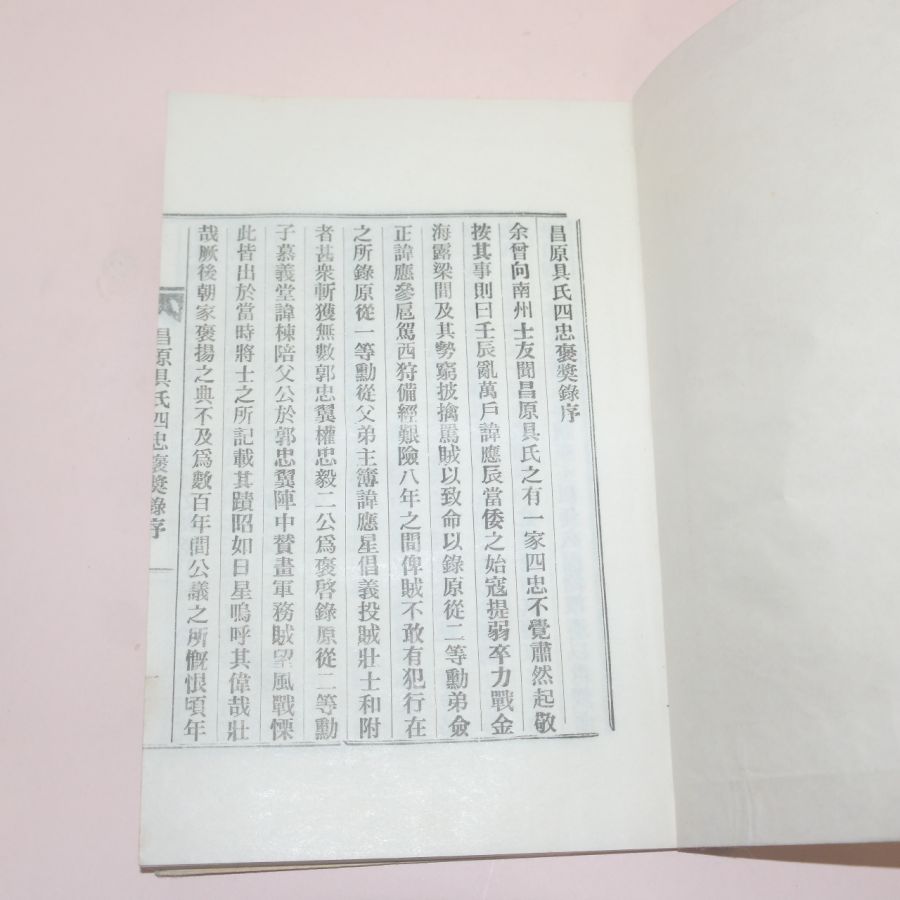 昌原具氏四忠褒奬錄序
余曾向南州士友聞昌原具氏之有一家四忠不覺肅然起敬
按其事則曰壬辰亂萬戶諱應辰當倭之始寇提弱卒力戰金
海露梁間及其勢窮披擒罵賊以致命以錄原從二等勳弟僉
正諱應參扈駕西狩備經艱險八年之間俾賊不敢有犯行在
之所錄原從一等勳從父弟主簿諱應星倡義投賊壯士和附
者甚衆斬獲無數郭忠翼權忠毅二公爲褒啓錄原從二等勳
子慕義堂諱棟陪父公於郭忠翼陣中贊畫軍務賊望風戰慄
此皆出於當時將士之所記載其蹟昭如日星嗚呼其偉哉壯
哉厥後朝家褒揚之典不及爲數百年間公議之所慨恨頃年
昌原具氏四忠褒奬錄序
一